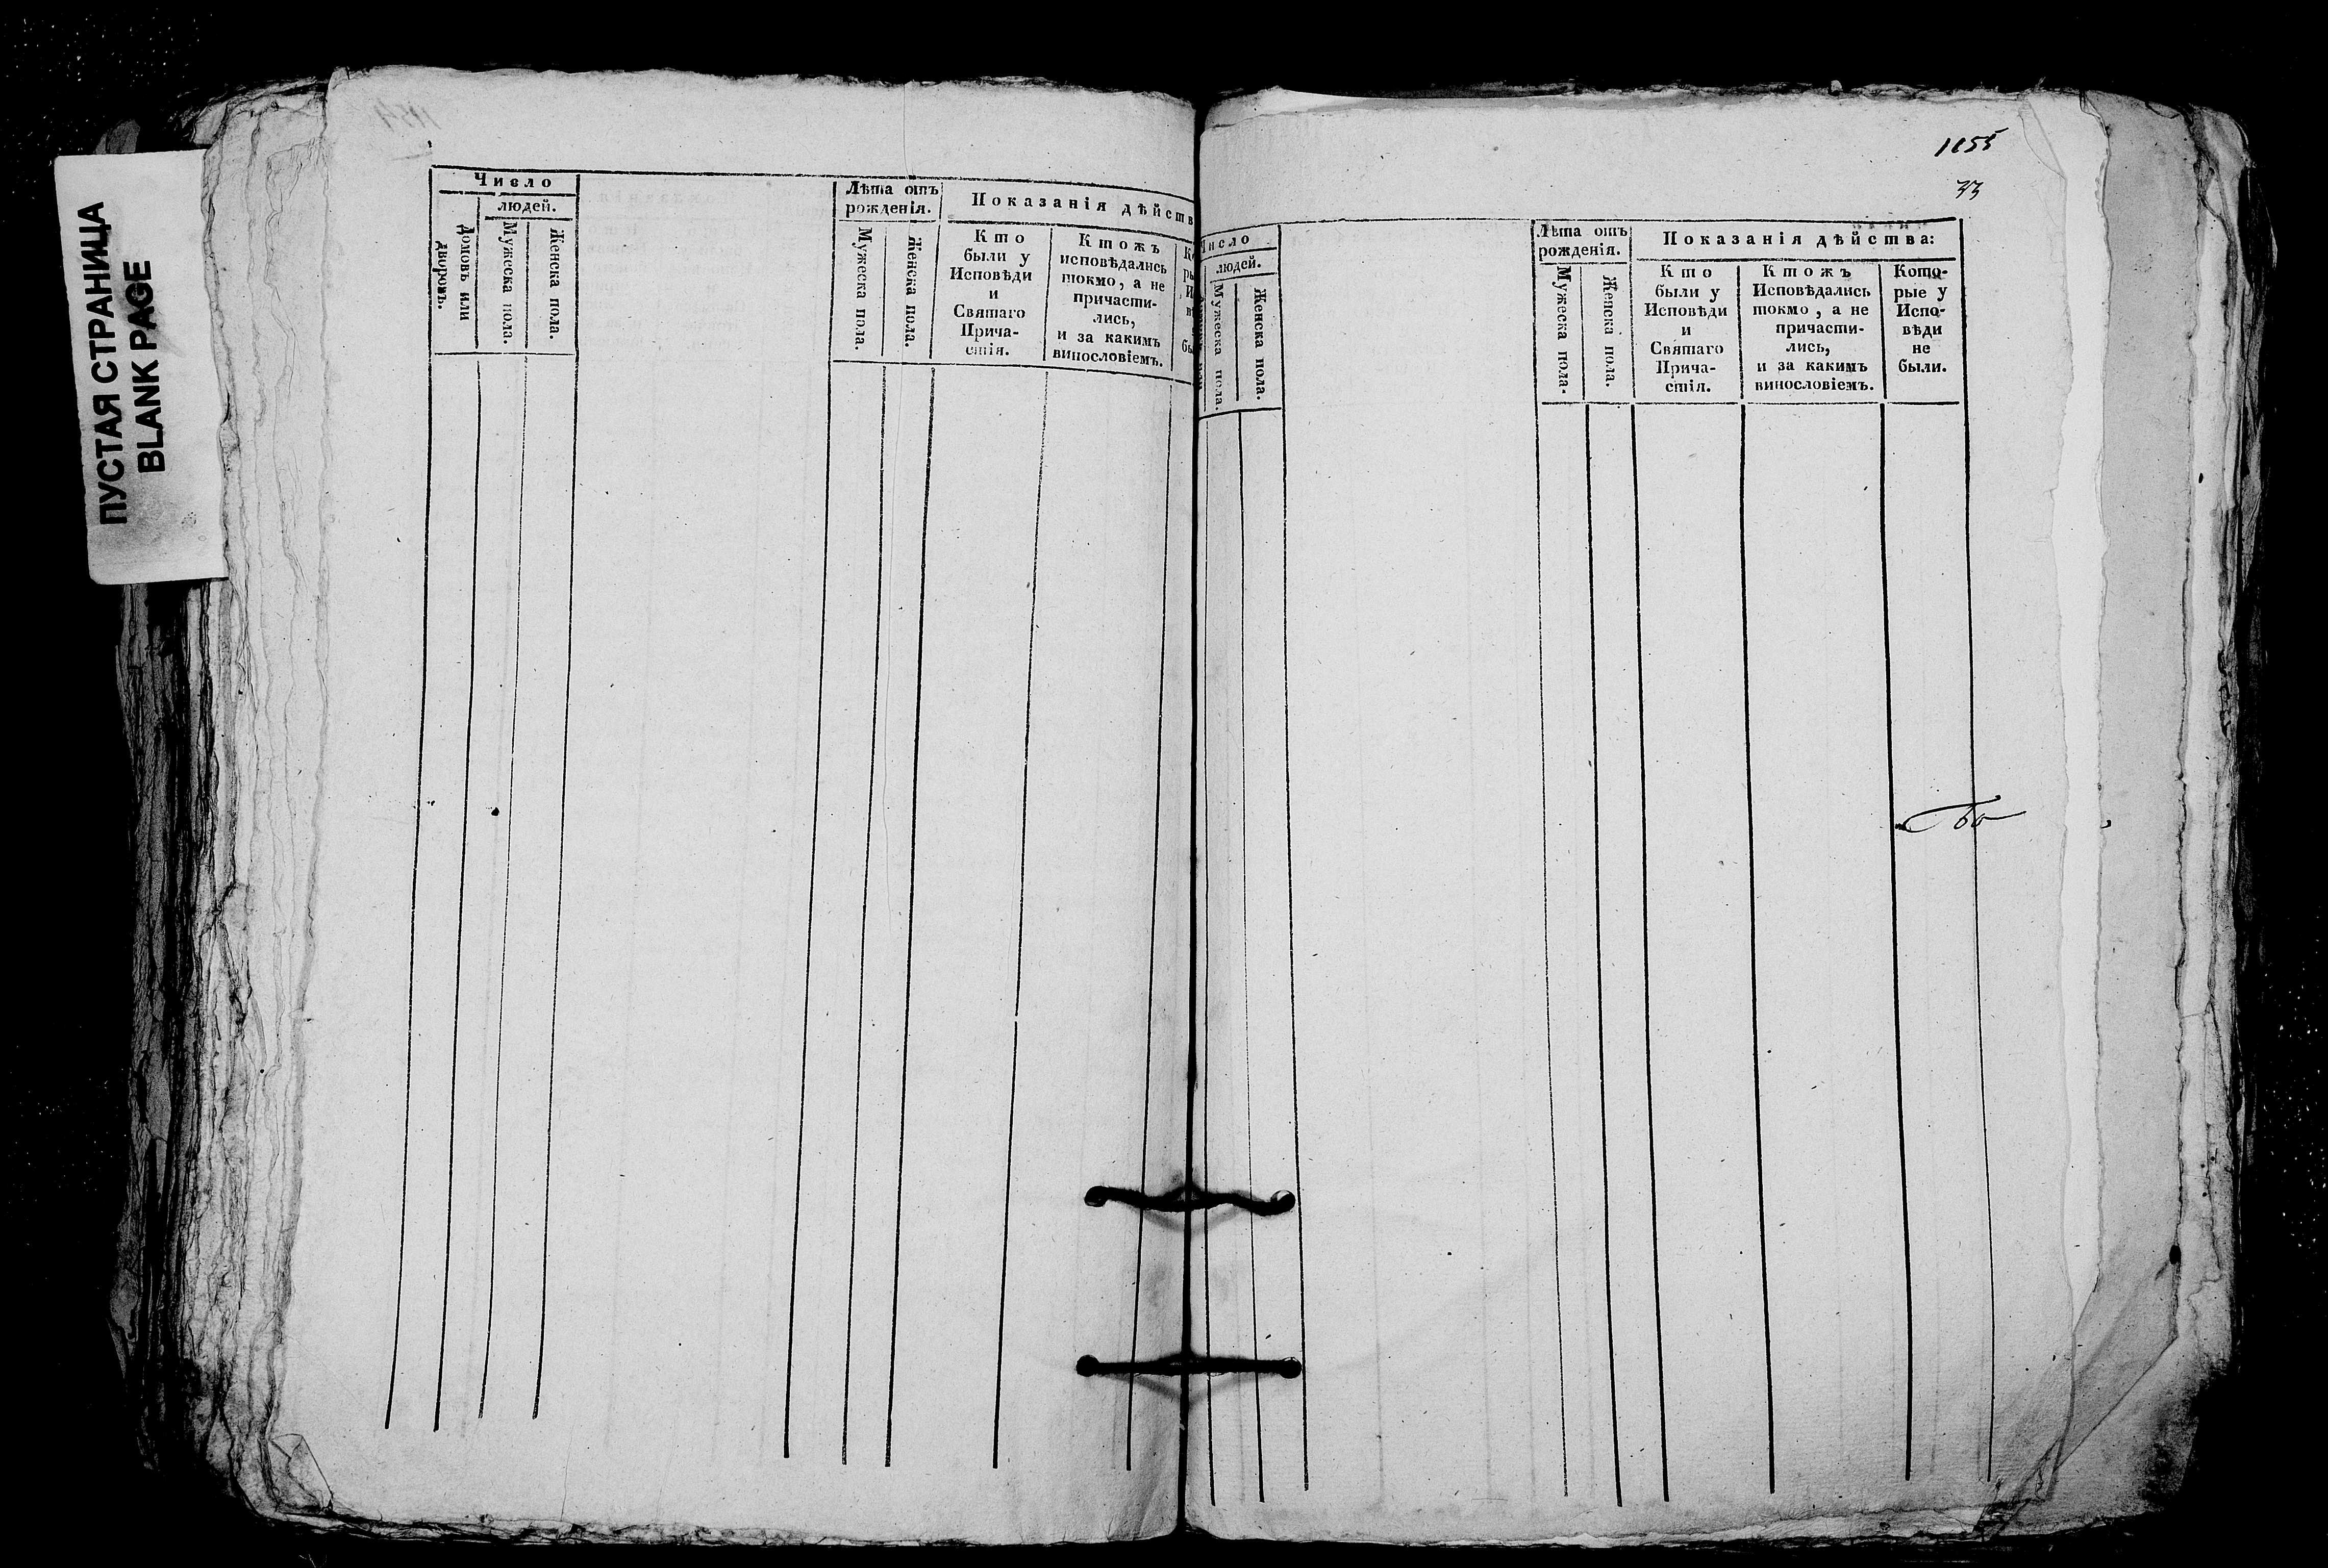 ПУСТАЯ СТРАНИЦА
BLANK PAGE
Число
людей.
Домовъ или
дворовъ.
Мужеска пола.
Женска пола.
Лѣта отъ
рожденія.
Мужеска пола.
Женска пола.
Показанія дѣйств
Кто
были у
Исповѣди
и
Святаго
Прича-
стія.
Ктожъ
исповѣдались
токмо, а не
причасти-
лись,
и за какимъ
винословіемъ.
1155
33
Число
людей.
Мужеска пола.
Женска пола.
Лѣта отъ
рожденія.
Мужеска пола.
Женска пола.
Показанія дѣйства:
Кто
были у
Исповѣди
и
Святаго
Прича-
стія.
Ктожъ
Исповѣдались
токмо, а не
причасти-
лись,
и за какимъ
винословіемъ.
Кото-
рые у
Испо-
вѣди
не
были.